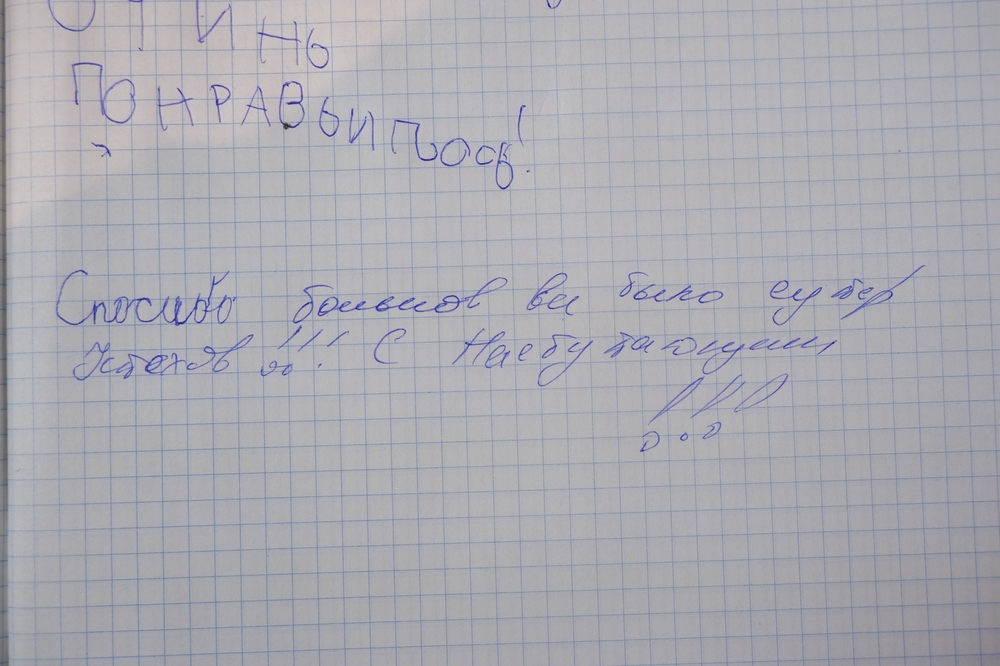 ОЧИНЬ
ПОНРАВЬИЛОСЬ!
Спосибо большов вы было супер
Успехов !!! С Наступающим
!!!